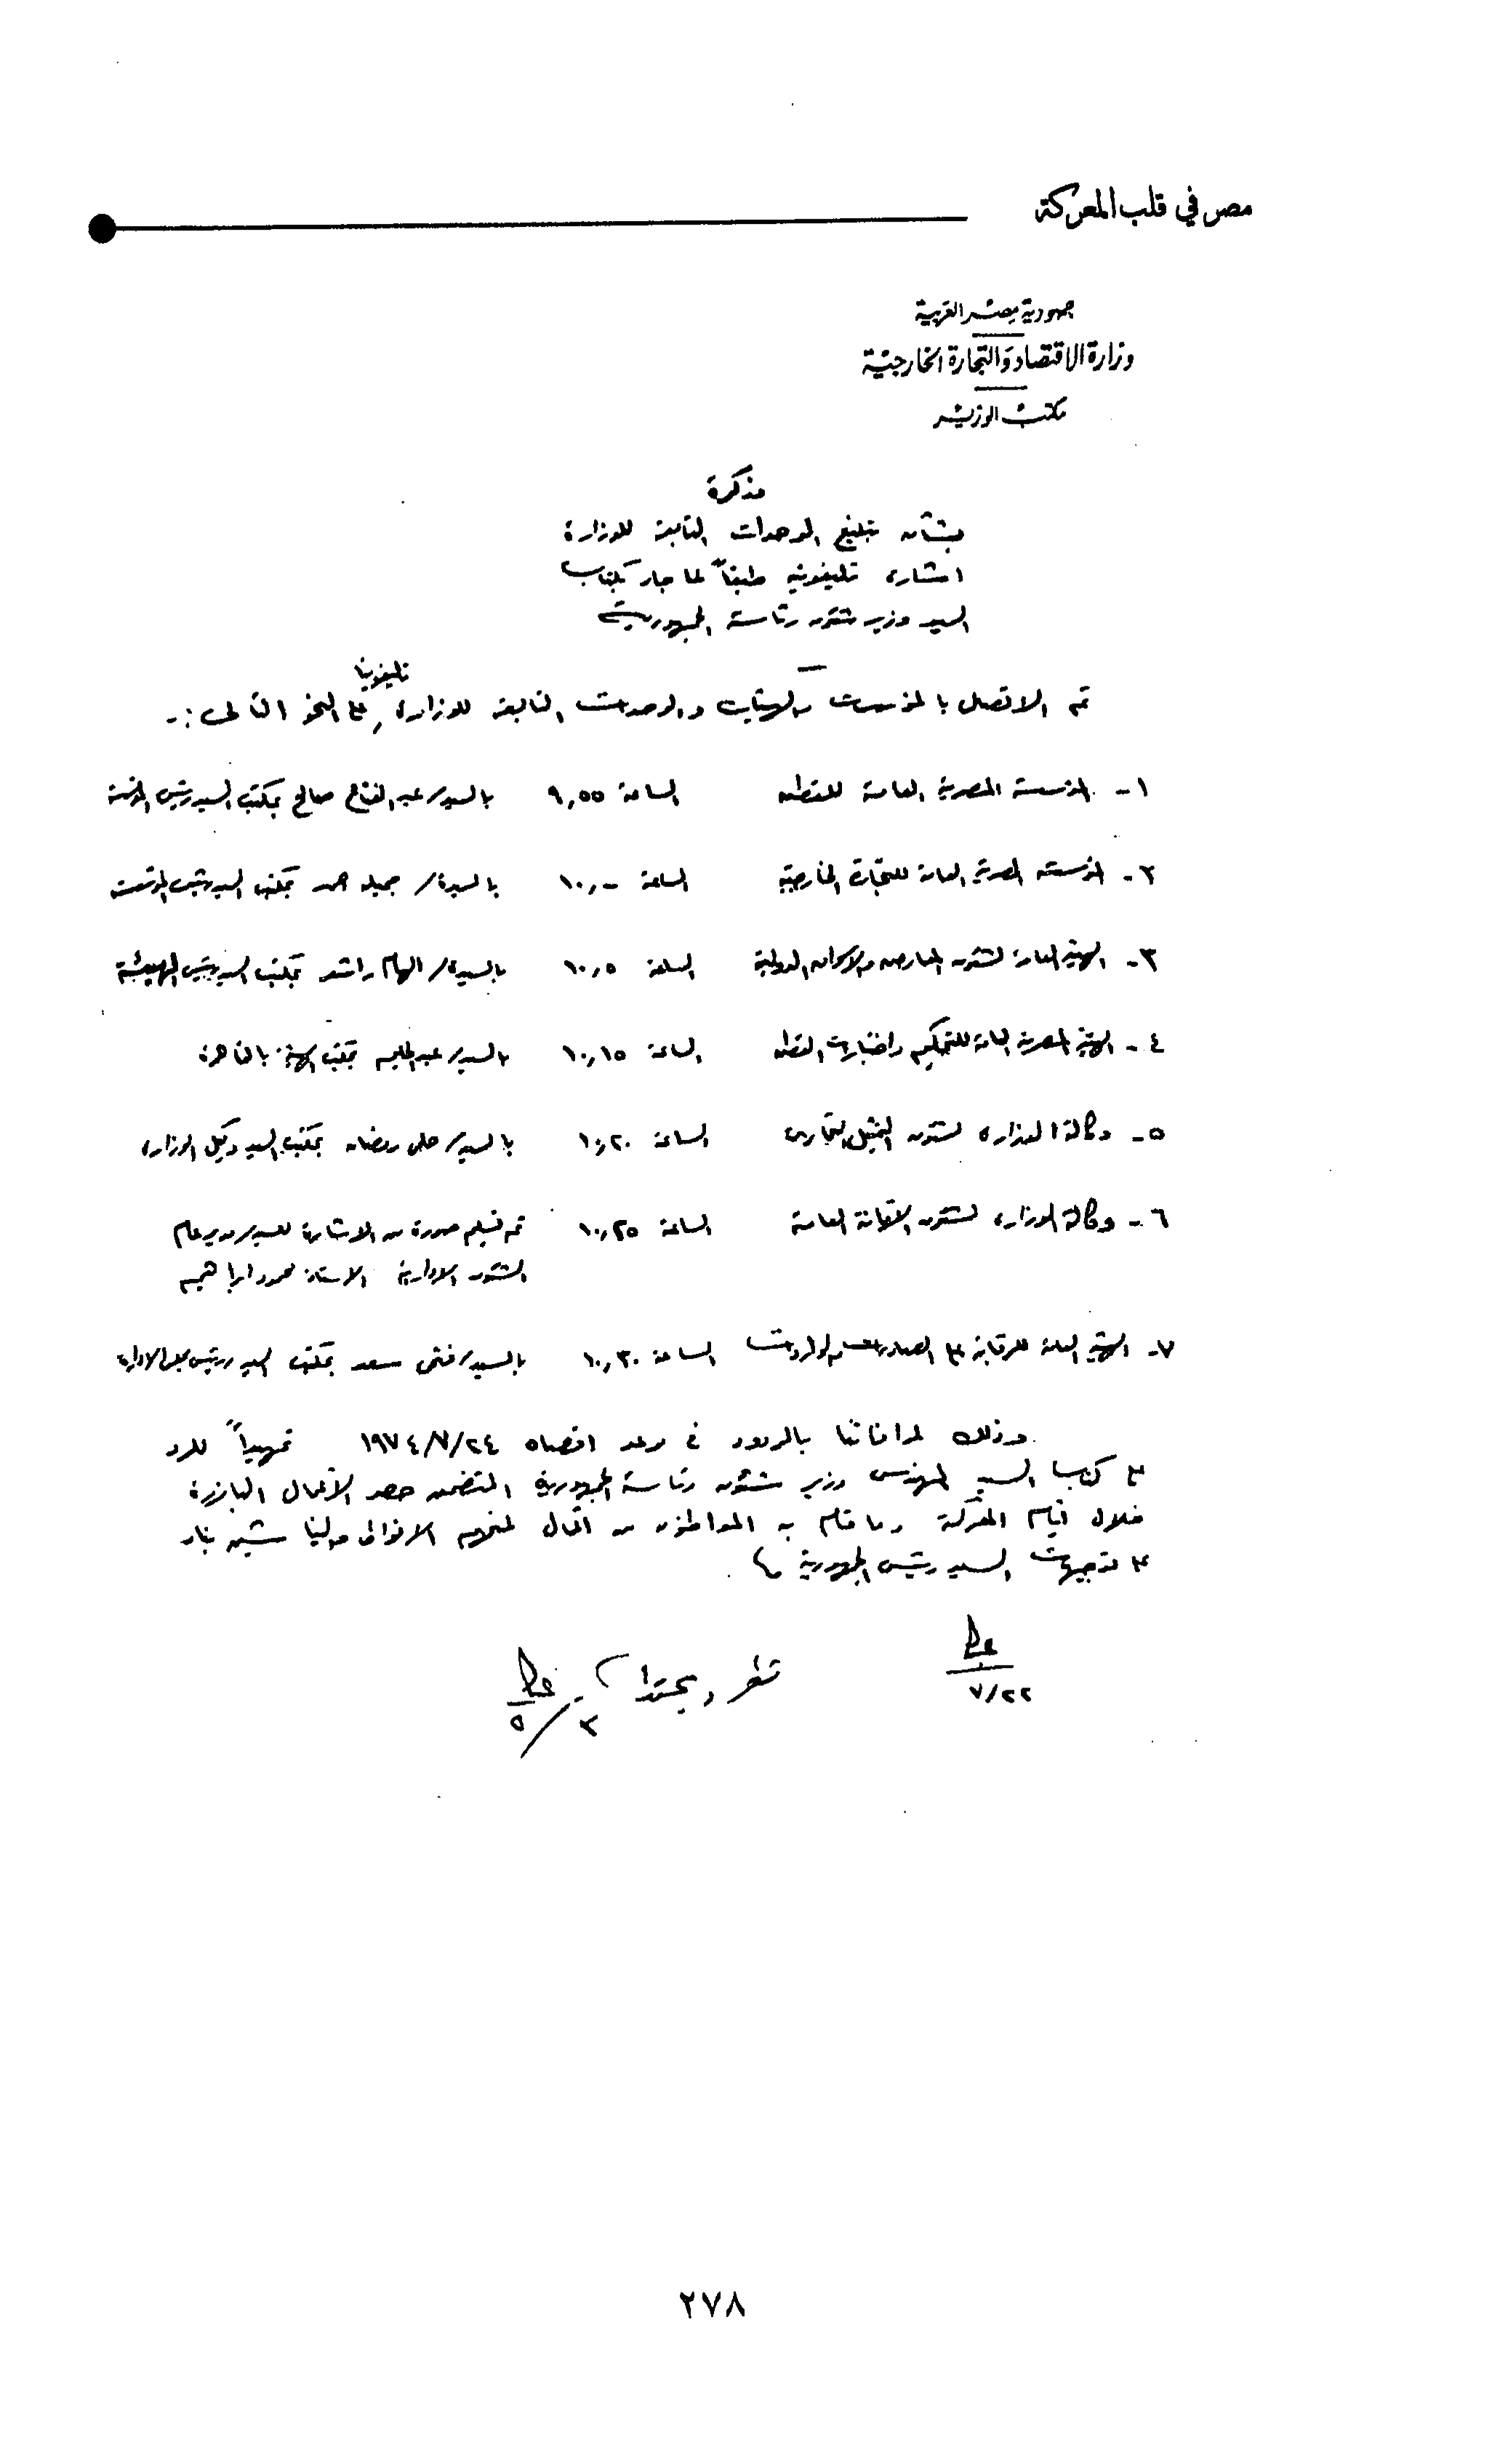 مصر في قلب المعركة
جمهورية مصر العربية
وزارة الاقتصاد والتجارة الخارجية
مكتب الوزير
مذكرة
بشأن تبليغ الوحدات التابعة للوزارة
اشارة تليفونية طبقاً لما جاء بكتاب
السيد وزير شئون رئاسة الجمهورية
تم الاتصال بالمؤسسات والهيئات والوحدات التابعة للوزارة تليفونيا على النحو التالى :-
١- المؤسسة المصرية العامة للقطن الساعة ٩,٥٥ بالسيد/ عبد الفتاح صالح بمكتب السيد رئيس المؤسسة
٢- المؤسسة المصرية العامة للتجارة الخارجية الساعة ١٠,٠٠ بالسيدة/ جميله حمد بمكتب السيد رئيس المؤسسة
٣- الهيئة العامة لشئون المعارض والاسواق الدولية الساعة ١٠,٥ بالسيدة/ الهام راشد بمكتب السيد رئيس الهيئة
٤- الهيئة المصرية العامة للتحكيم واختبارات القطن الساعة ١٠,١٥ بالسيد/ عبد الحليم بمكتب الهيئة بالقاهرة
٥- وكالة الوزارة لشئون التمثيل التجارى الساعة ١٠,٢٠ بالسيد/ حلمى رمضان بمكتب السيد وكيل الوزارة
٦- وكالة الوزارة لشئون الامانة العامة الساعة ١٠,٢٥ تم تسليم صورة من الاشارة للسيد مدير عام
الشئون الادارية الاستاذ محمود ابراهيم
٧- الهيئة العامة للرقابة على الصادرات والواردات الساعة ١٠,٣٠ بالسيد/ فتحى سعد بمكتب السيد رئيس مجلس الادارة
وذلك لموافاتنا بالردود فى موعد اقصاه ١٩٧٤/٧/٢٤ تمهيداً للرد
على كتاب السيد المهندس وزير شئون رئاسة الجمهورية المتضمن حصر الأعمال البارزة
خلال أيام المعركة وما قام به المواطنون من أعمال لمنحهم الانواط بناء
على توجيهات السيد رئيس الجمهورية
٧/٢٢
نظر و
٥/٣
٢٧٨